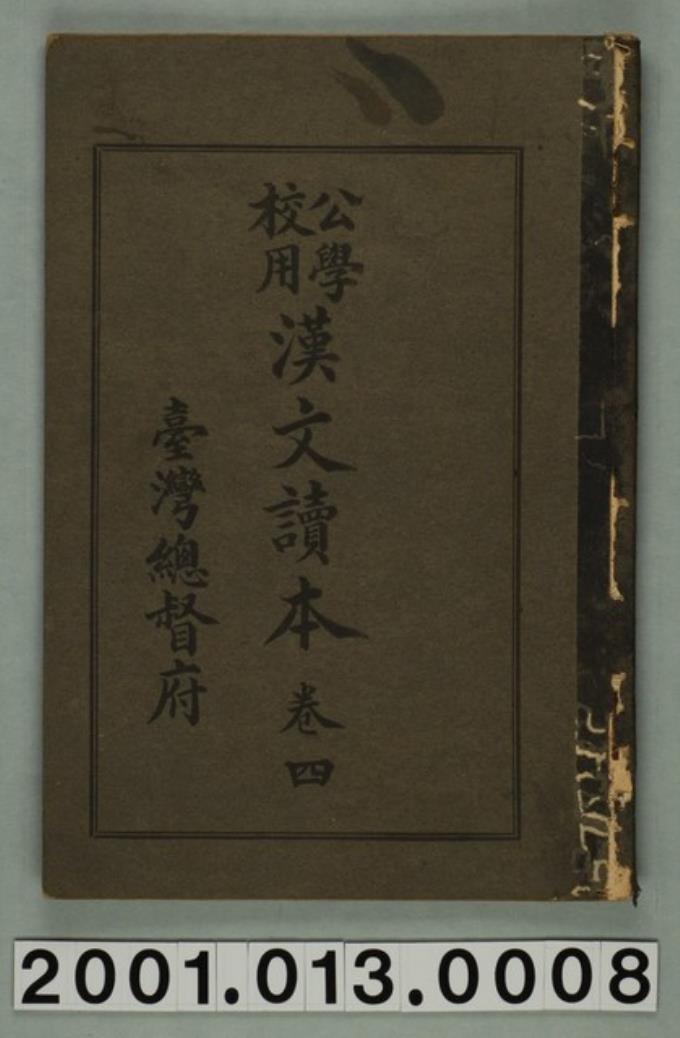 公學校用
漢文讀本 卷四
臺灣總督府
2001.013.0008